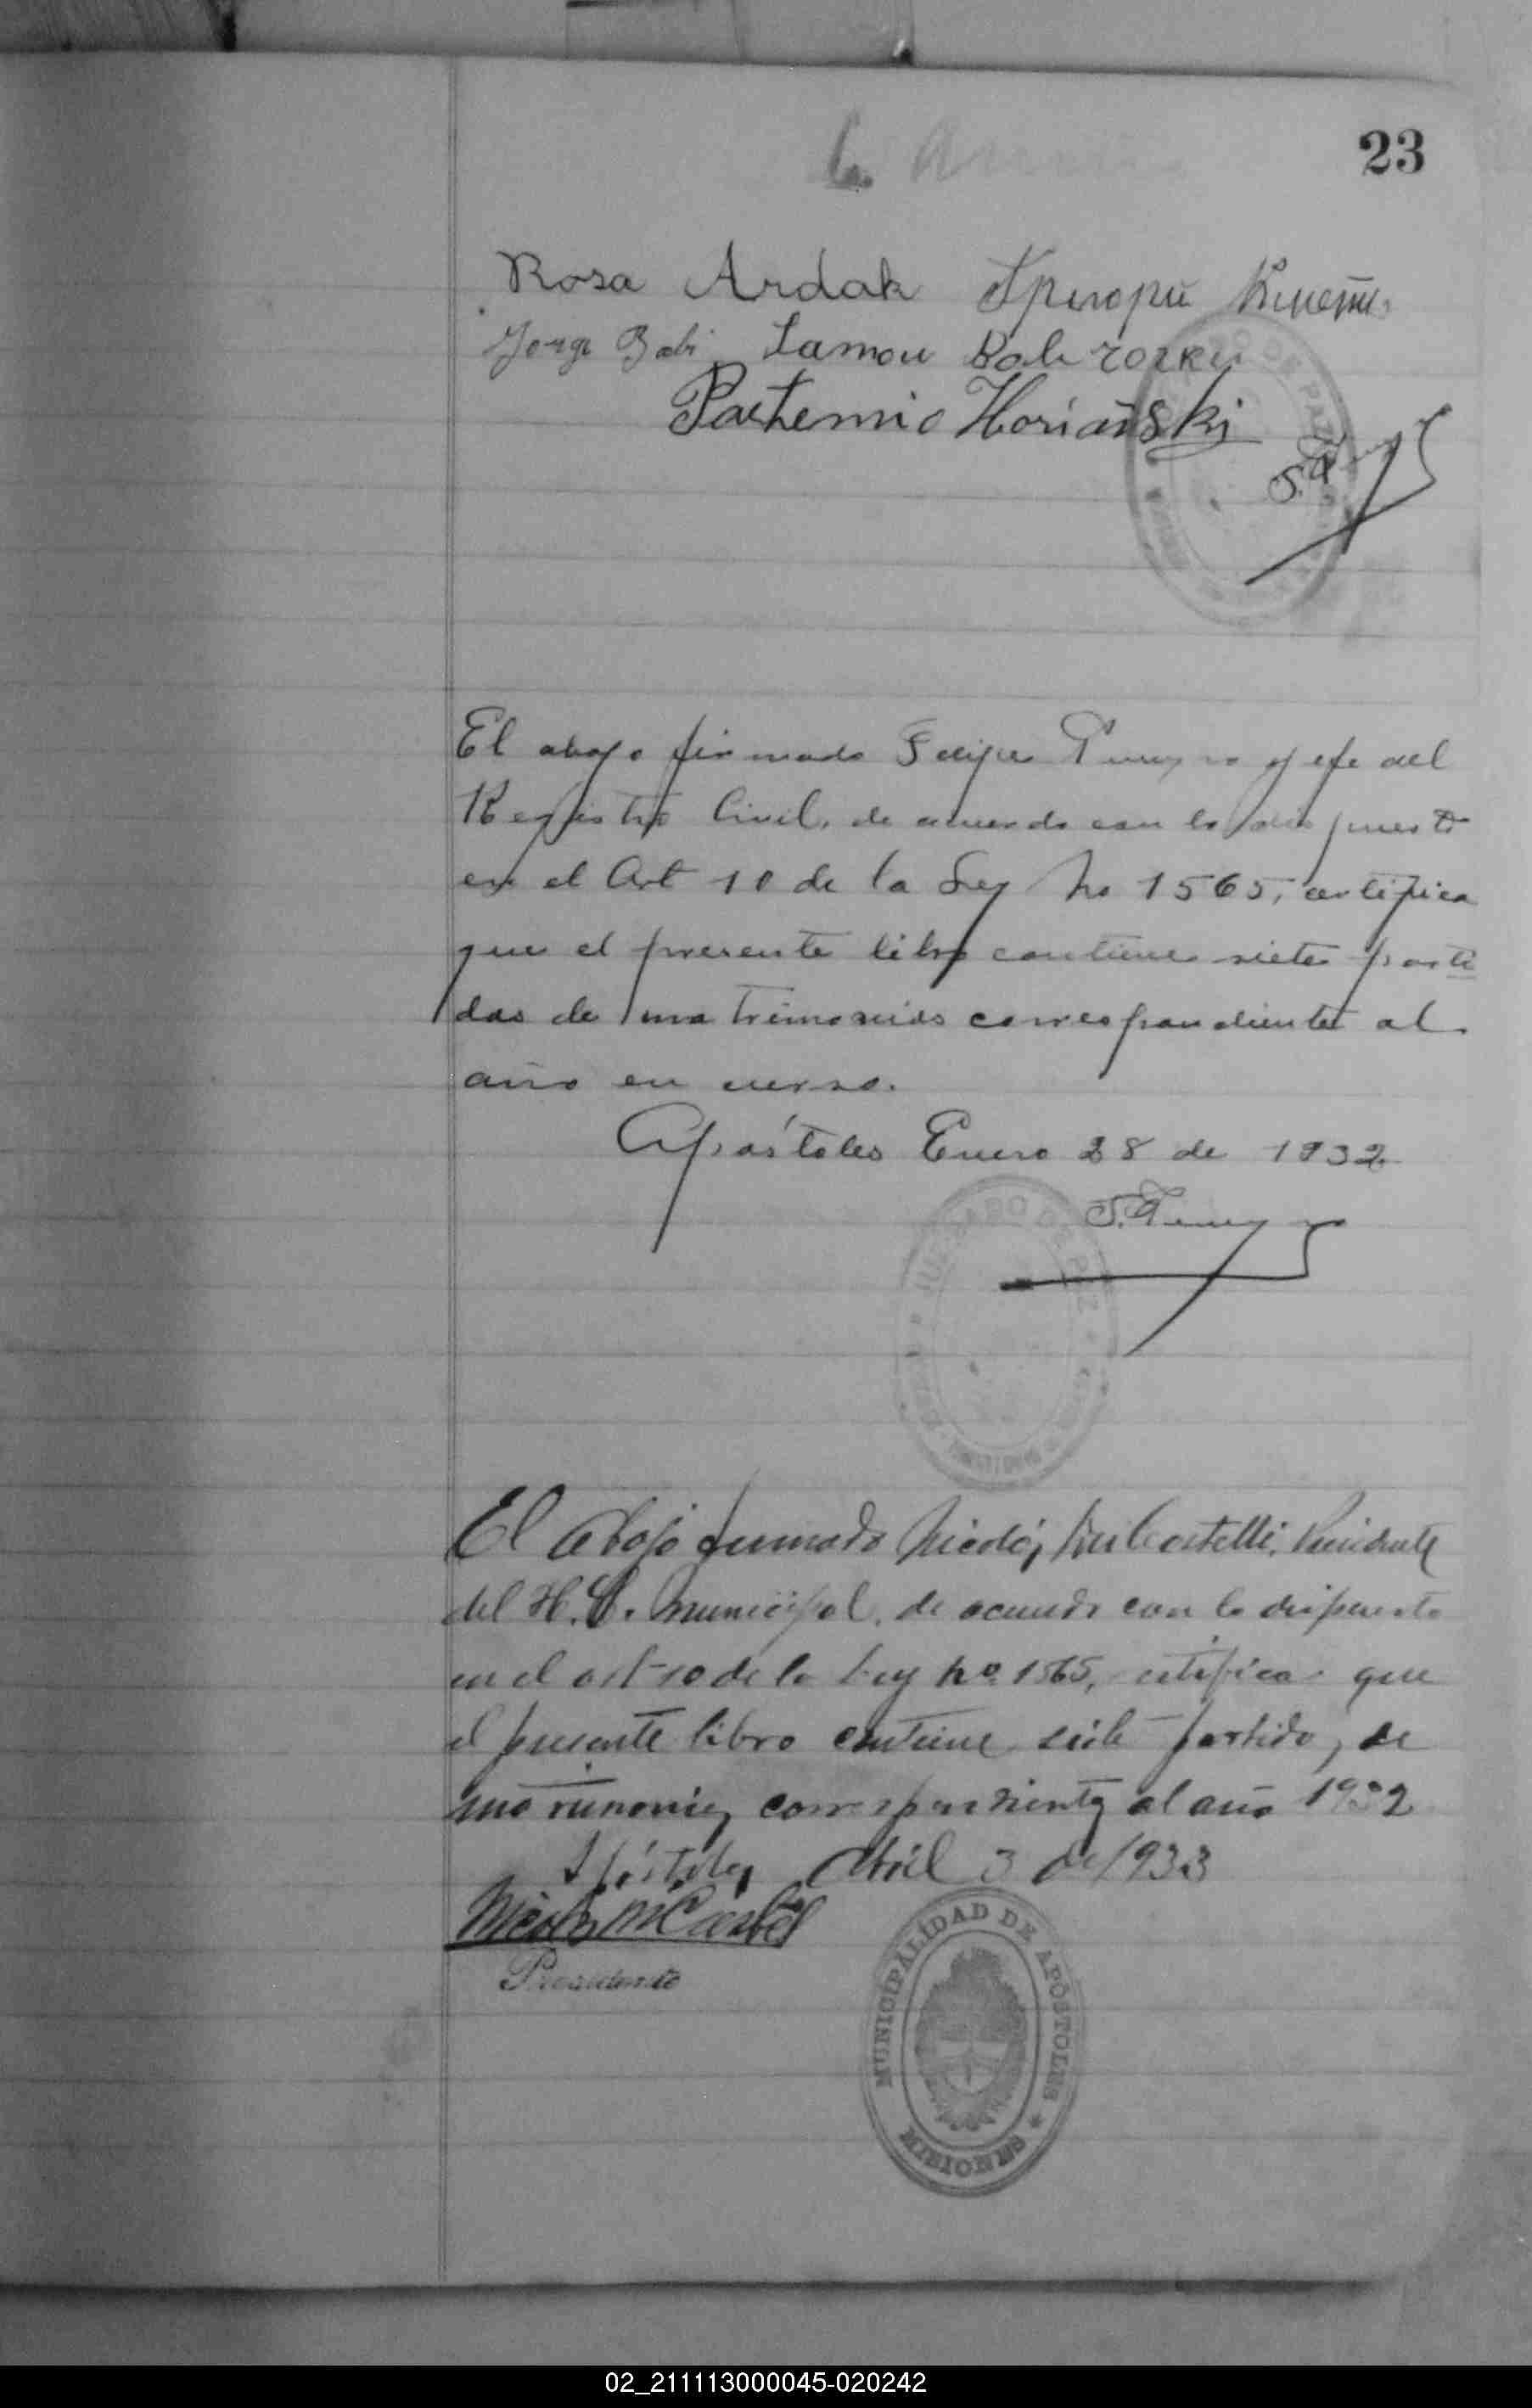 23
Rosa Ardak Григорій
Jorge Babi
Partemio Horiański
El abajo firmado Felipe jefe del
Registro Civil, de acuerdo con lo dispuesto
en el Art 10 de la Ley No 1565, certifica
que el presente libro contiene siete parti
das de matrimonios correspondientes al
año en curso.
Apóstoles Enero 28 de 1932
JUZGADO DE PAZ
El abajo firmado Nicolás Presidente
del H. C. Municipal, de acuerdo con lo dispuesto
en el art 10 de la Ley No 1565, certifica que
el presente libro contiene siete partidas de
matrimonios correspondientes al año 1932
Apóstoles, Abril 3 de 1933
Presidente
MUNICIPALIDAD DE APÓSTOLES
MISIONES
02_211113000045-020242